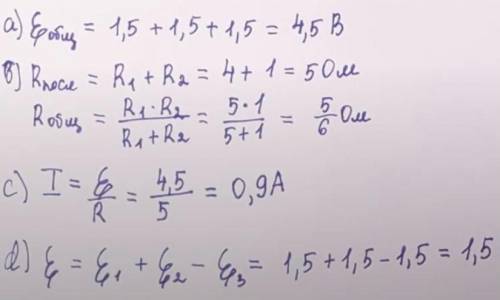 a) ℰобщ = 1,5 + 1,5 + 1,5 = 4,5 В
b) Rпосл = R1 + R2 = 4 + 1 = 5 Ом
Rобщ = R1·R2 / R1+R2 = 5·1 / 5+1 = 5/6 Ом
c) I = ℰ/R = 4,5/5 = 0,9 А
d) ℰ = ℰ1 + ℰ2 − ℰ3 = 1,5 + 1,5 − 1,5 = 1,5